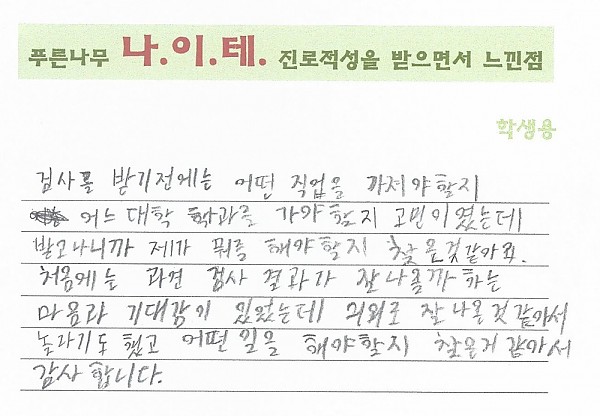 푸른나무 나.이.테. 진로적성을 받으면서 느낀점
학생용
검사를 받기전에는 어떤 직업을 가져야할지
어느 대학 학과를 가야 할지 고민이였는데
받고나니까 제가 뭐를 해야할지 찾은것같아요.
처음에는 과연 검사 결과가 잘나올까 하는
마음과 기대감이 있었는데 의외로 잘 나온것 같아서
놀라기도 했고 어떤 일을 해야할지 찾은거 같아서
감사 합니다.